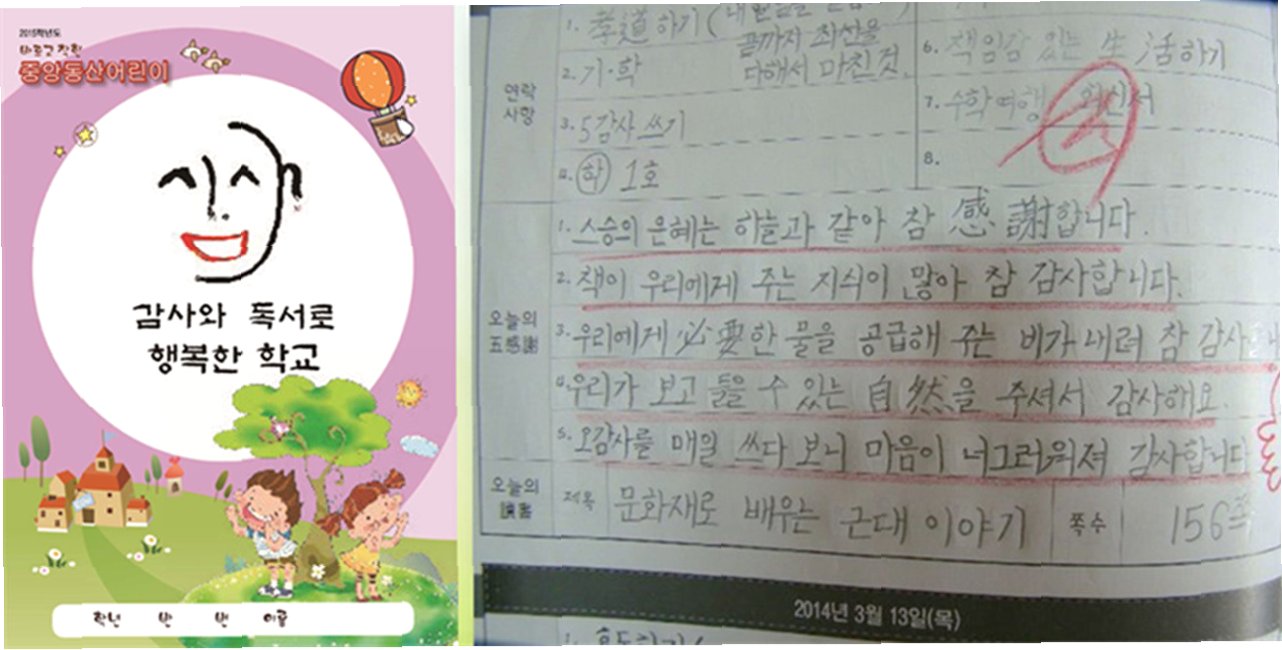 2015학년도
바르고 착한
중앙동산어린이
감사와 독서로
행복한 학교
학년 반 번 이름
연락
사항
1. 孝道하기 (
끝까지 최선을
다해서 마친 것.
2. 기·학
3. 5감사 쓰기
4. 학 1호
6. 책임감 있는 生活하기
7. 수학여행 회신서
8.
오늘의
五感謝
1. 스승의 은혜는 하늘과 같아 참 感謝합니다.
2. 책이 우리에게 주는 지식이 많아 참 감사합니다.
3. 우리에게 必要한 물을 공급해 주는 비가 내려 참 감사
4. 우리가 보고 들을 수 있는 自然을 주셔서 감사해요.
5. 오감사를 매일 쓰다 보니 마음이 너그러워져 감사합니다
오늘의
讀書
제목 문화재로 배우는 근대 이야기 쪽수 156쪽
2014년 3월 13일(목)
1. 효도하기 (